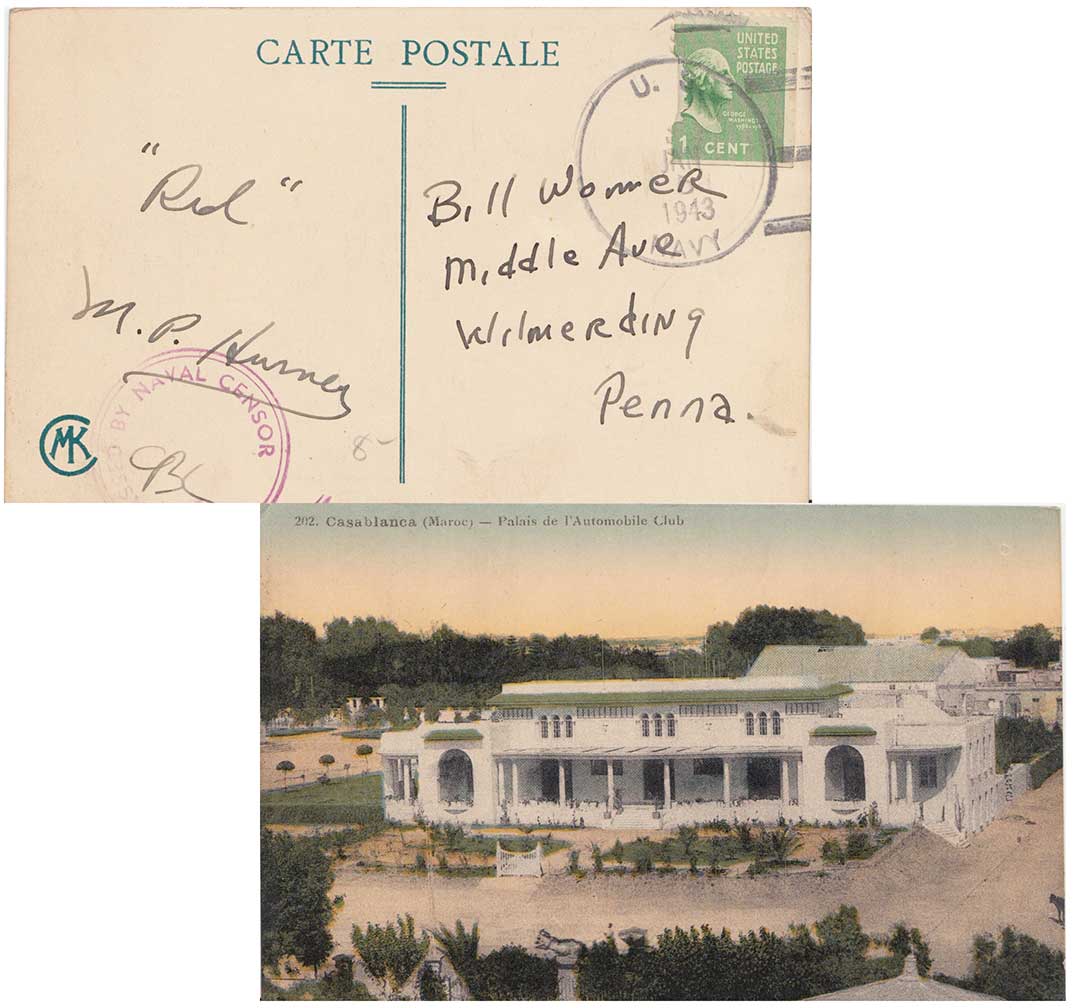 CARTE POSTALE
UNITED
STATES
POSTAGE
GEORGE
1 CENT
U.
JAN
1943
NAVY
"Red"
Bill Wonner
Middle Ave
Wilmerding
Penna.
M. P. Hurney
BY NAVAL CENSOR
MK
8-
202. Casablanca (Maroc) — Palais de l'Automobile Club